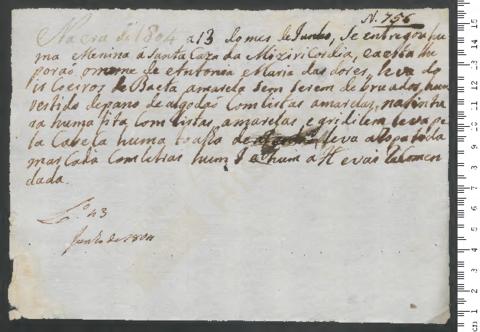 N. 756
Na era de 1804 a 13 do mes de Junho, Se entregou hu
ma Menina á Santa Caza da Miziricordia, e a esta lhe
porão o nome de Antonea e Maria das dores, leva do
is Coeiros de Baeta amarela Sem serem debruados, hum
vestido de pano de algodão Com listas amarelas, na
na huma fita Com listas amarelas e gridilem leva pe
la Cabesa huma toalha leva atopatada
marcada Com letras hum J a hum a H e vai
dada.
L.º 43
Junho de 1804
cm 1 2 3 4 5 6 7 8 9 10 11 12 13 14 15